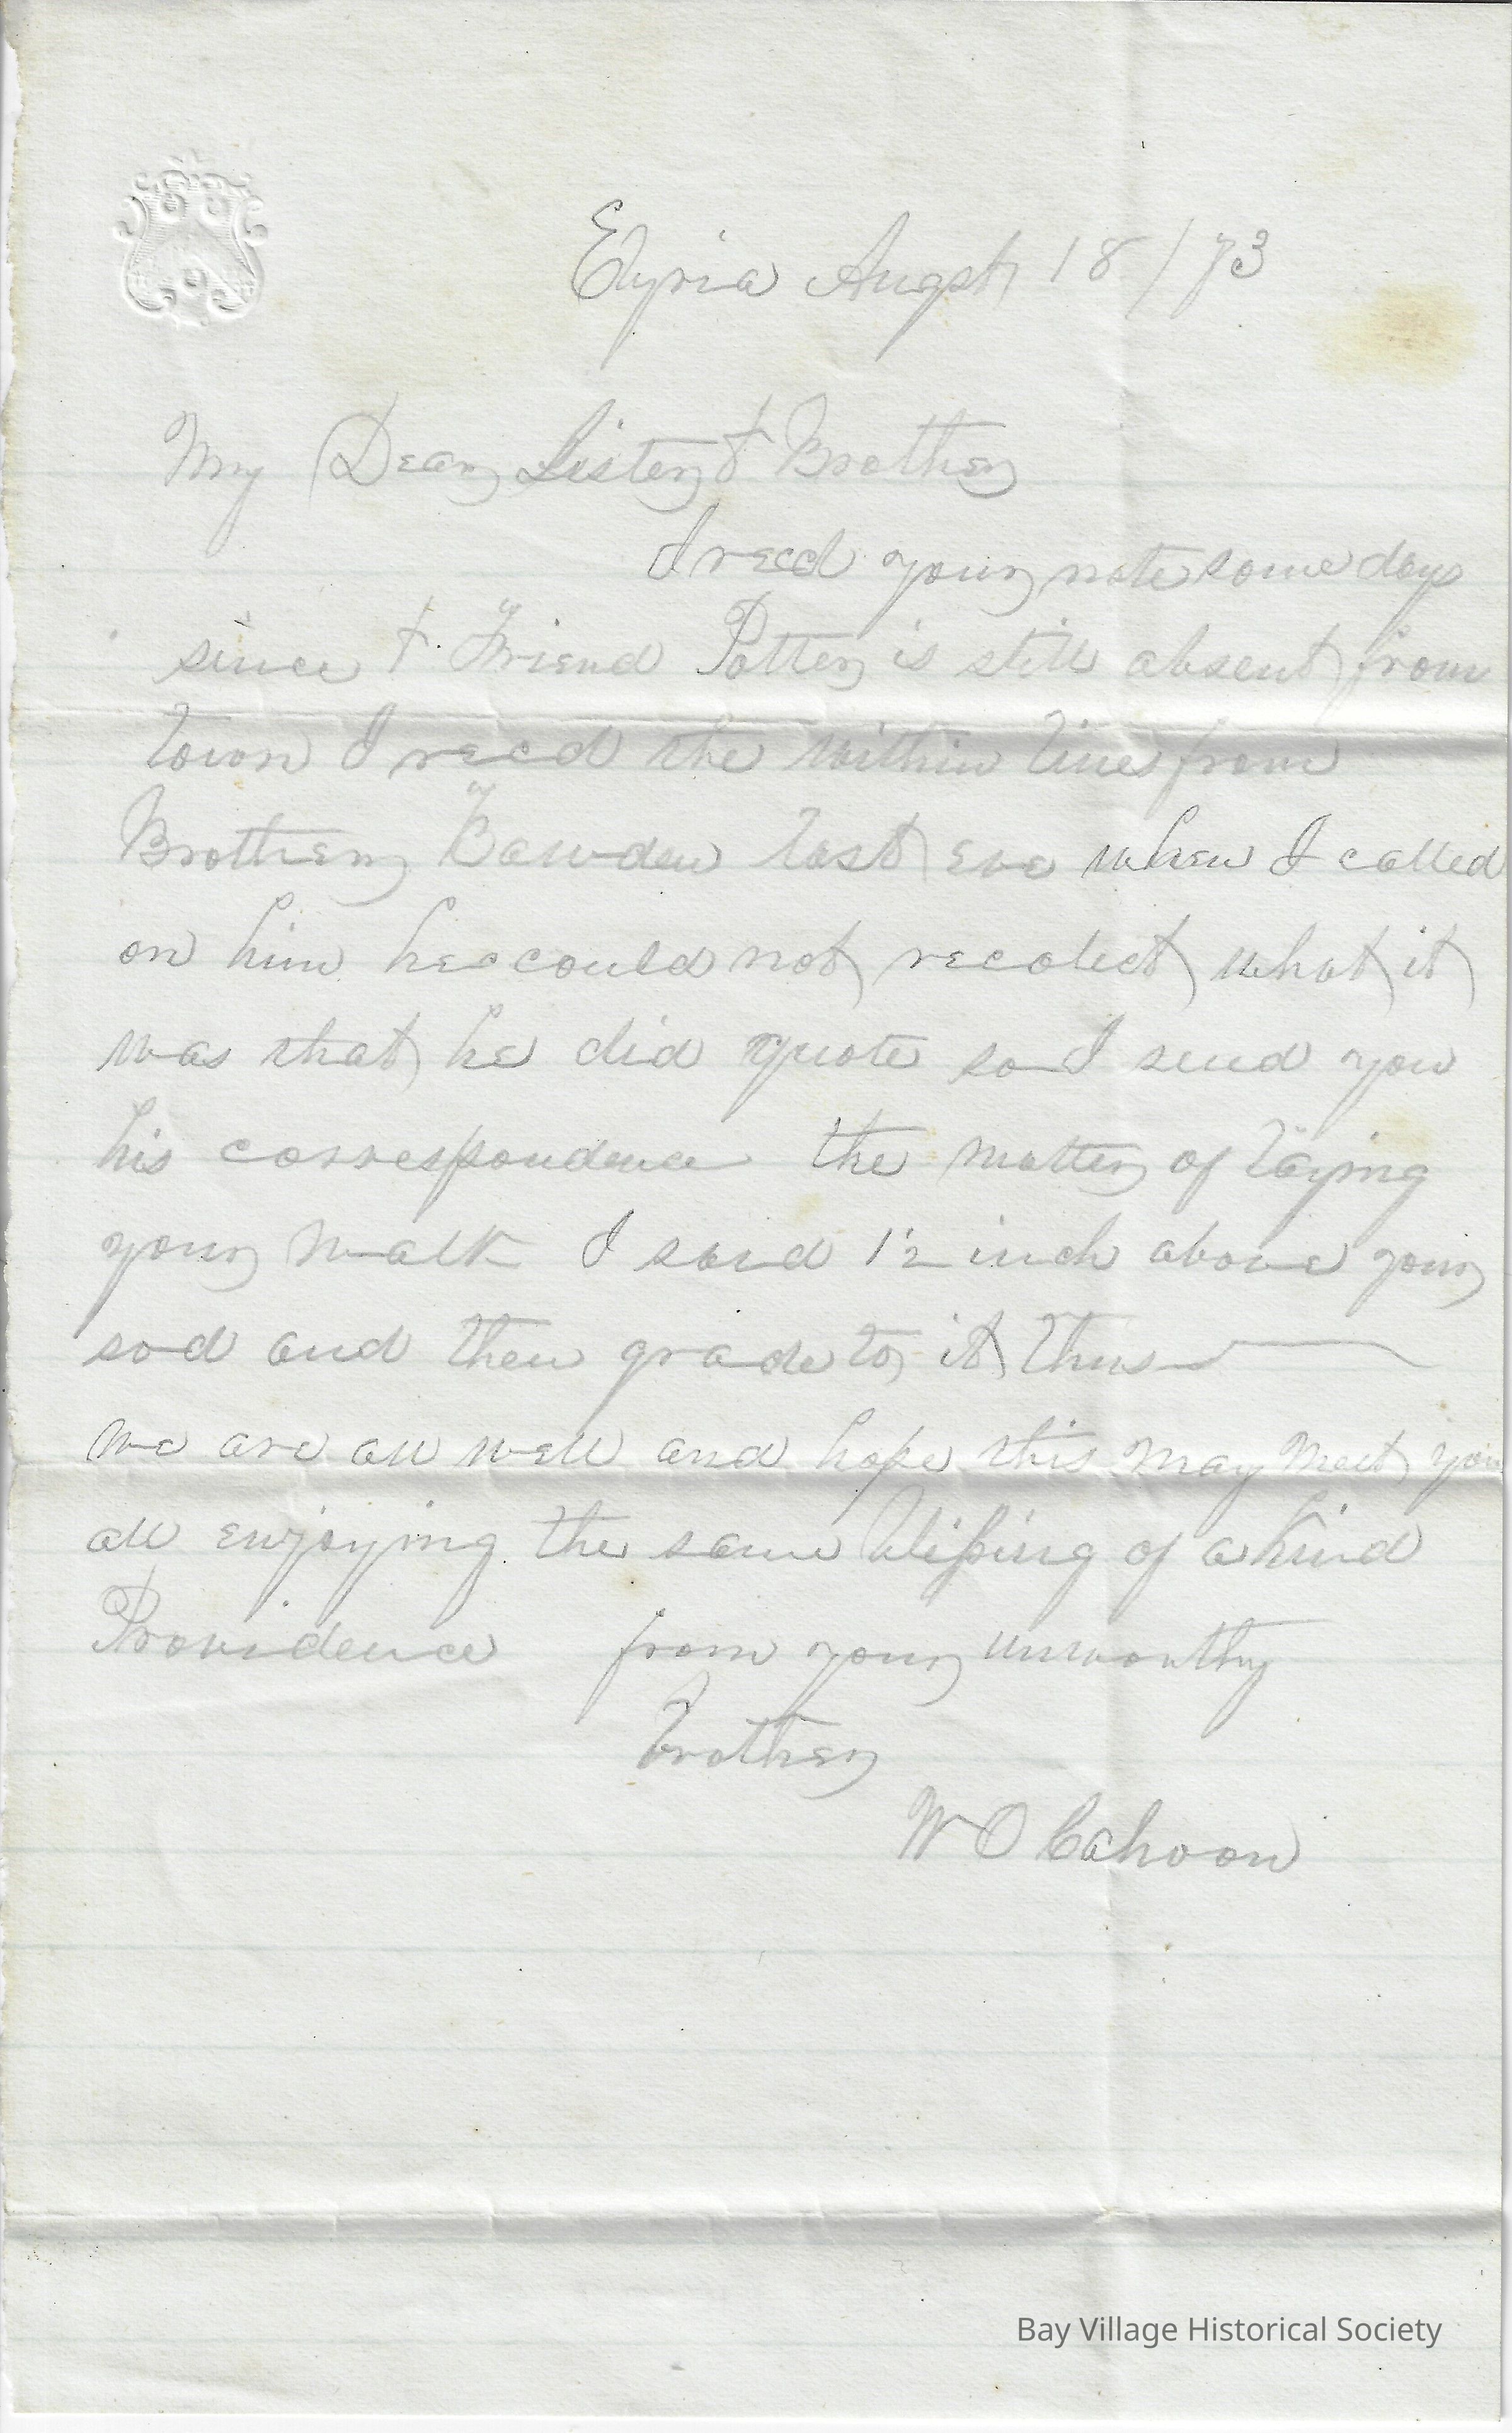 Elyria Augst 18 / 73
My Dear Sister & Brother
I recd your note some days
since & Friend Potter is still absent from
town I recd the within line from
Brother last eve when I called
on him he could not recolect what it
was that he did quote so I send you
his correspondence the matter of laying
your walk I said 12 inch above your
sod and then grade to it thus
we are all well and hope this may meet you
all enjoying the same blessing of a kind
Providence from your unworthy
Brother
W O Cahoon
Bay Village Historical Society